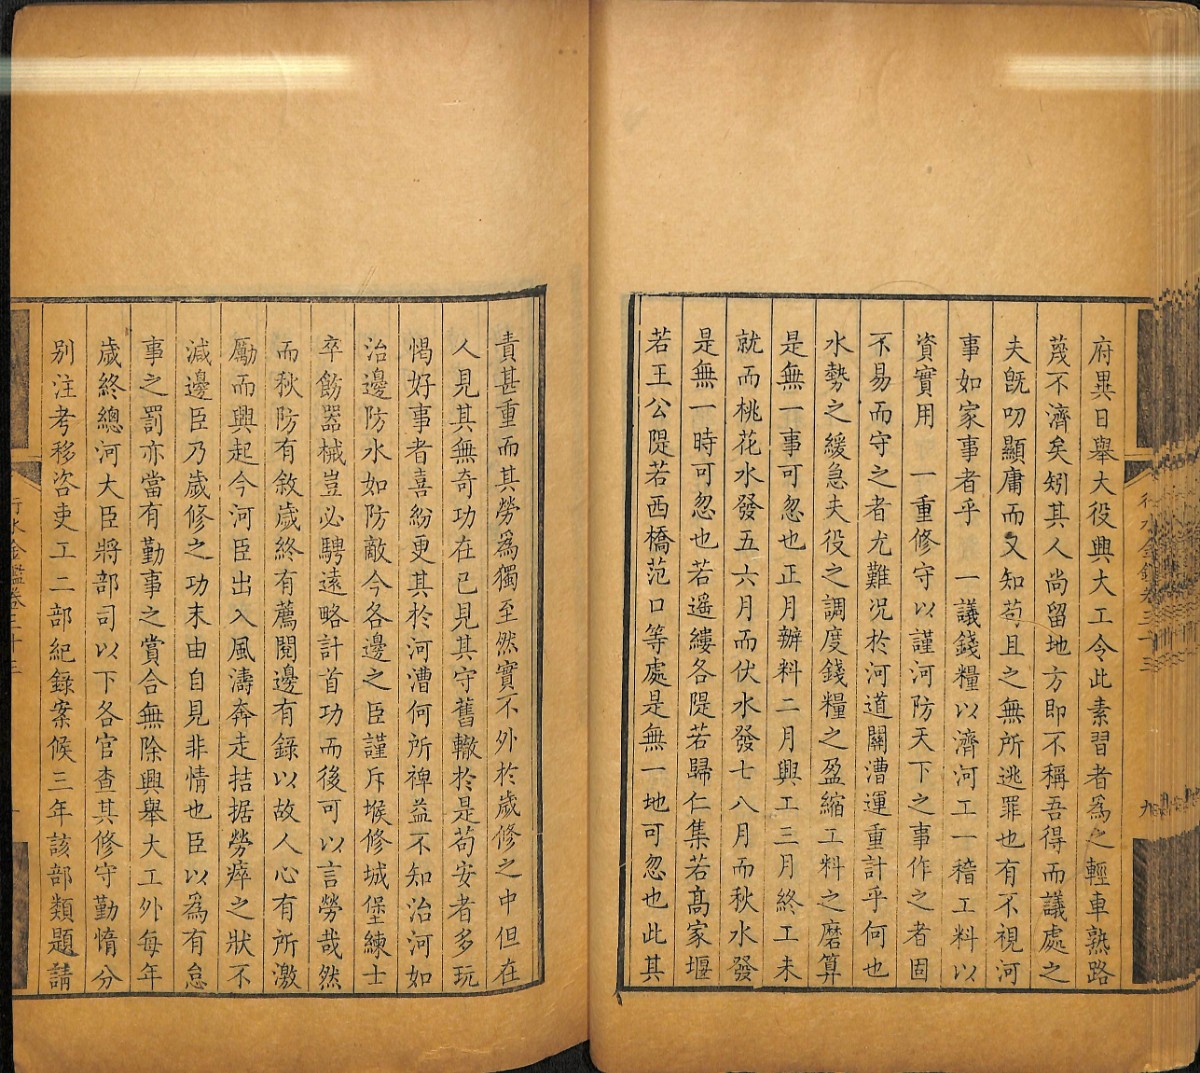 府異日舉大役興大工令此素習者為之輕車熟路
蔑不濟矣矧其人尚留地方即不稱吾得而議處之
夫旣叨顯庸而又知苟且之無所逃罪也有不視河
事如家事者乎　一議錢糧以濟河工一稽工料以
資實用　一重修守以謹河防天下之事作之者固
不易而守之者尤難况於河道關漕運重計乎何也
水勢之緩急夫役之調度錢糧之盈縮工料之磨算
是無一事可忽也正月辦料二月興工三月終工未
就而桃花水發五六月而伏水發七八月而秋水發
是無一時可忽也若遥縷各隄若歸仁集若髙家堰
若王公隄若西橋范口等處是無一地可忽也此其
行水金鑑卷三十三
九
責甚重而其勞為獨至然實不外於歲修之中但在
人見其無奇功在已見其守舊轍於是苟安者多玩
愒好事者喜紛更其於河漕何所裨益不知治河如
治邊防水如防敵今各邊之臣謹斥堠修城堡練士
卒飭器械豈必騁遠略計首功而後可以言勞哉然
而秋防有敘歲終有薦閱邊有錄以故人心有所激
勵而興起今河臣出入風濤奔走拮据勞瘁之狀不
減邊臣乃歲修之功末由自見非情也臣以為有怠
事之罰亦當有勤事之賞合無除興舉大工外每年
歲終總河大臣將部司以下各官查其修守勤惰分
别注考移咨吏工二部紀錄案候三年該部類題請
行水金鑑卷三十三